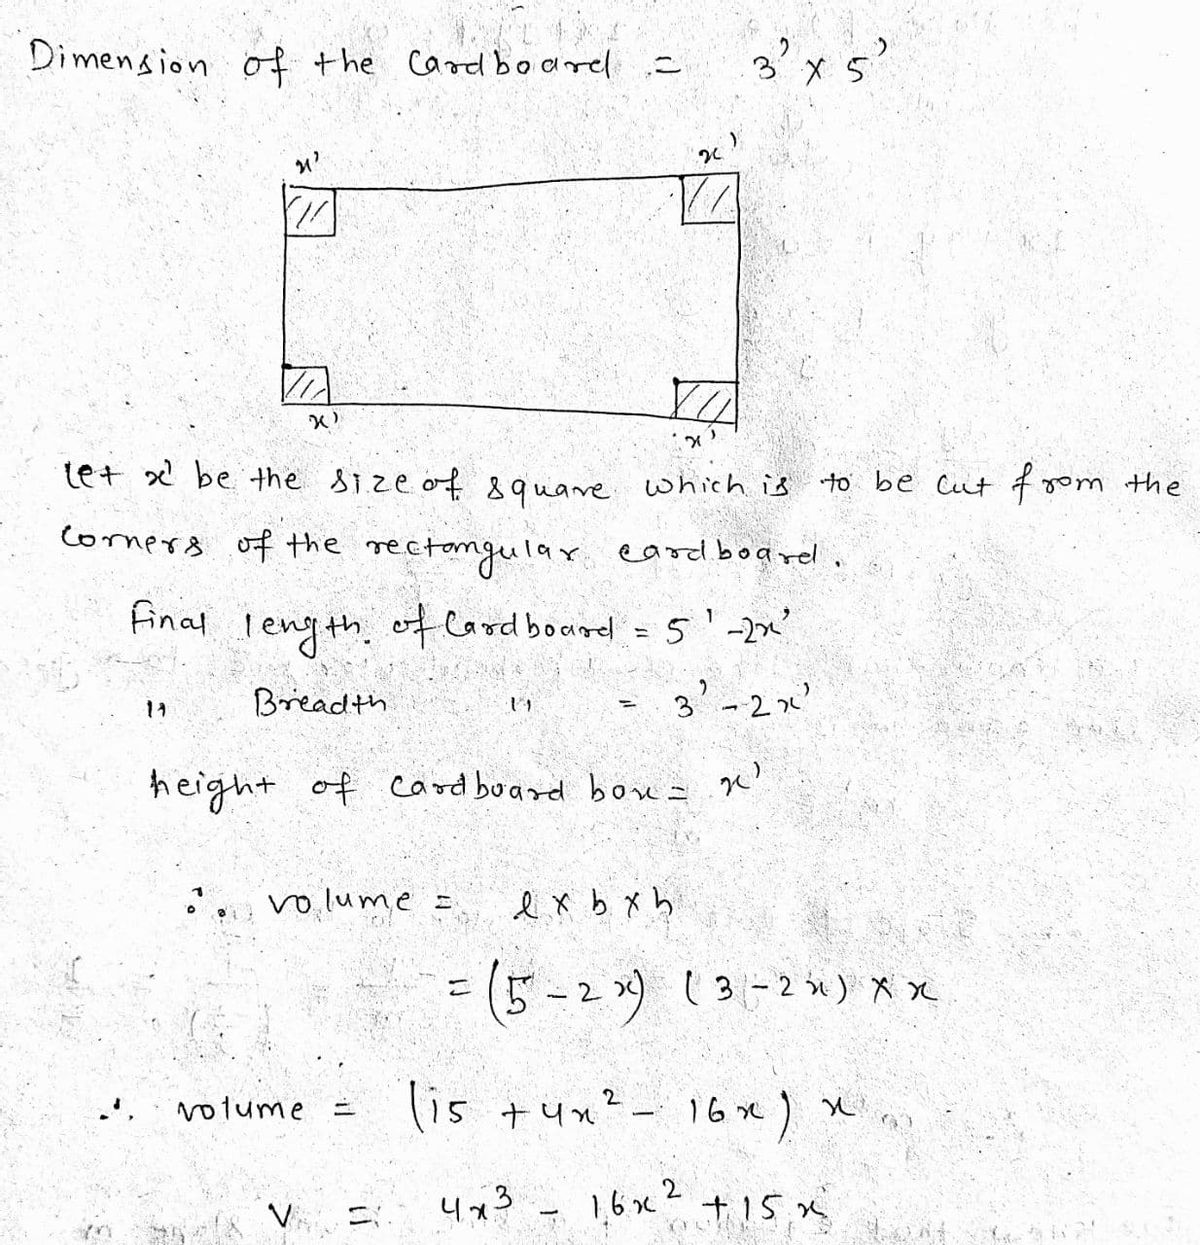 Dimension of the Cardboard = 3' x 5'
x' x'
x' x'
let x' be the size of square which is to be cut from the
Corners of the rectangular cardboard.
final length of Cardboard = 5' -2x'
" Breadth " = 3' - 2x'
height of cardboard box = x'
∴ volume = l x b x h
= (5 - 2x) (3 - 2x) x x
∴ volume = (15 + 4x² - 16x) x
V = 4x³ - 16x² + 15x